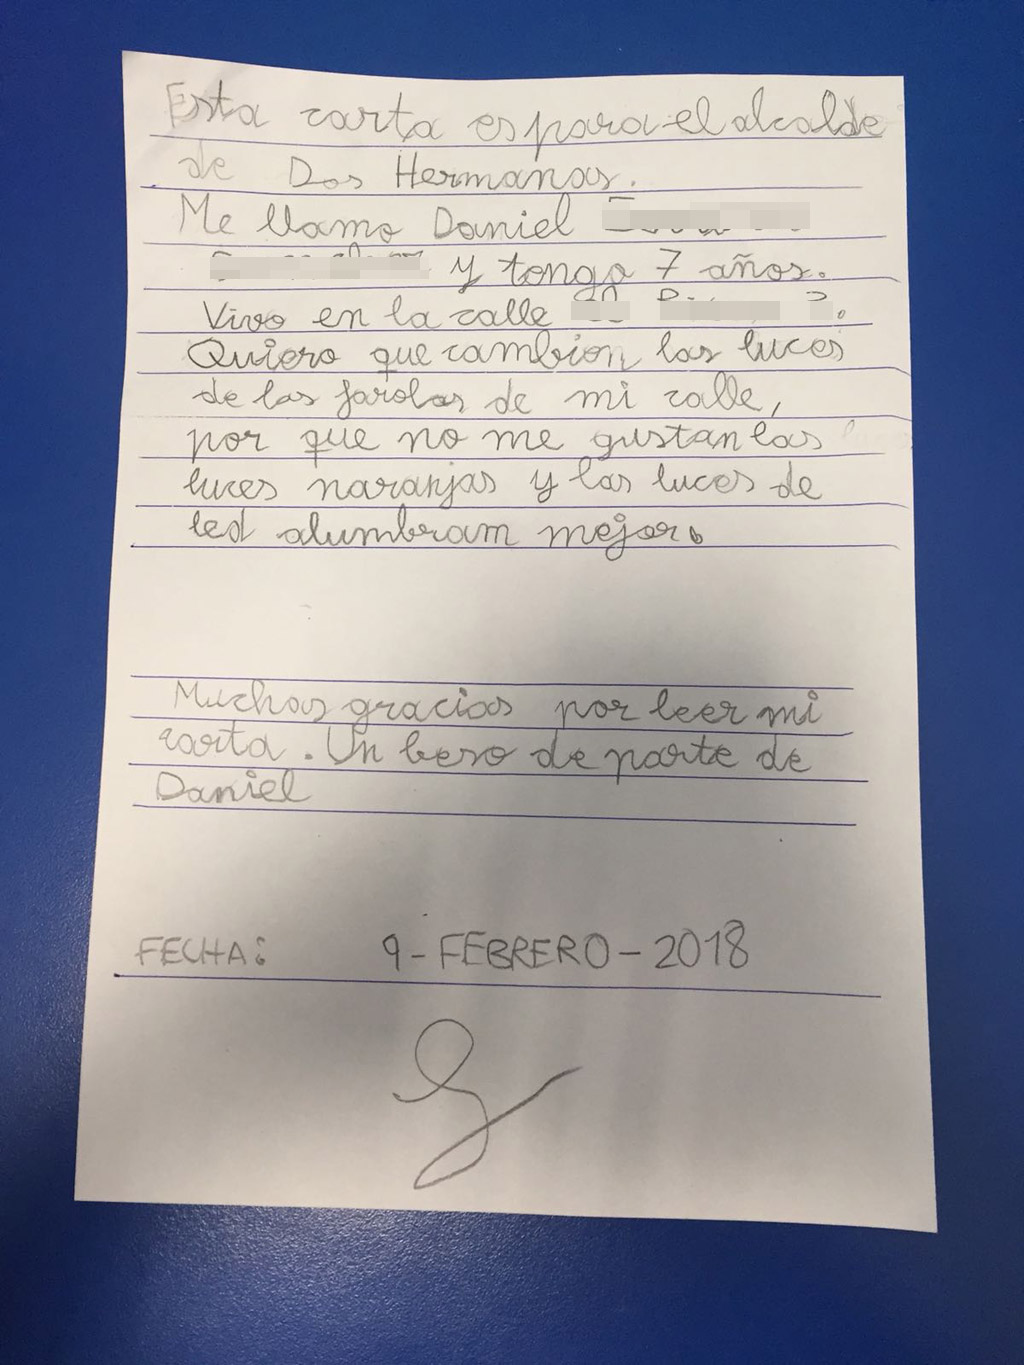 Esta carta es para el alcalde
de Dos Hermanas.
Me llamo Daniel
y tengo 7 años.
Vivo en la calle
Quiero que cambien las luces
de las farolas de mi calle,
por que no me gustan las
luces naranjas y las luces de
led alumbram mejor.
Muchas gracias por leer mi
carta. Un beso de parte de
Daniel
FECHA: 9-FEBRERO-2018